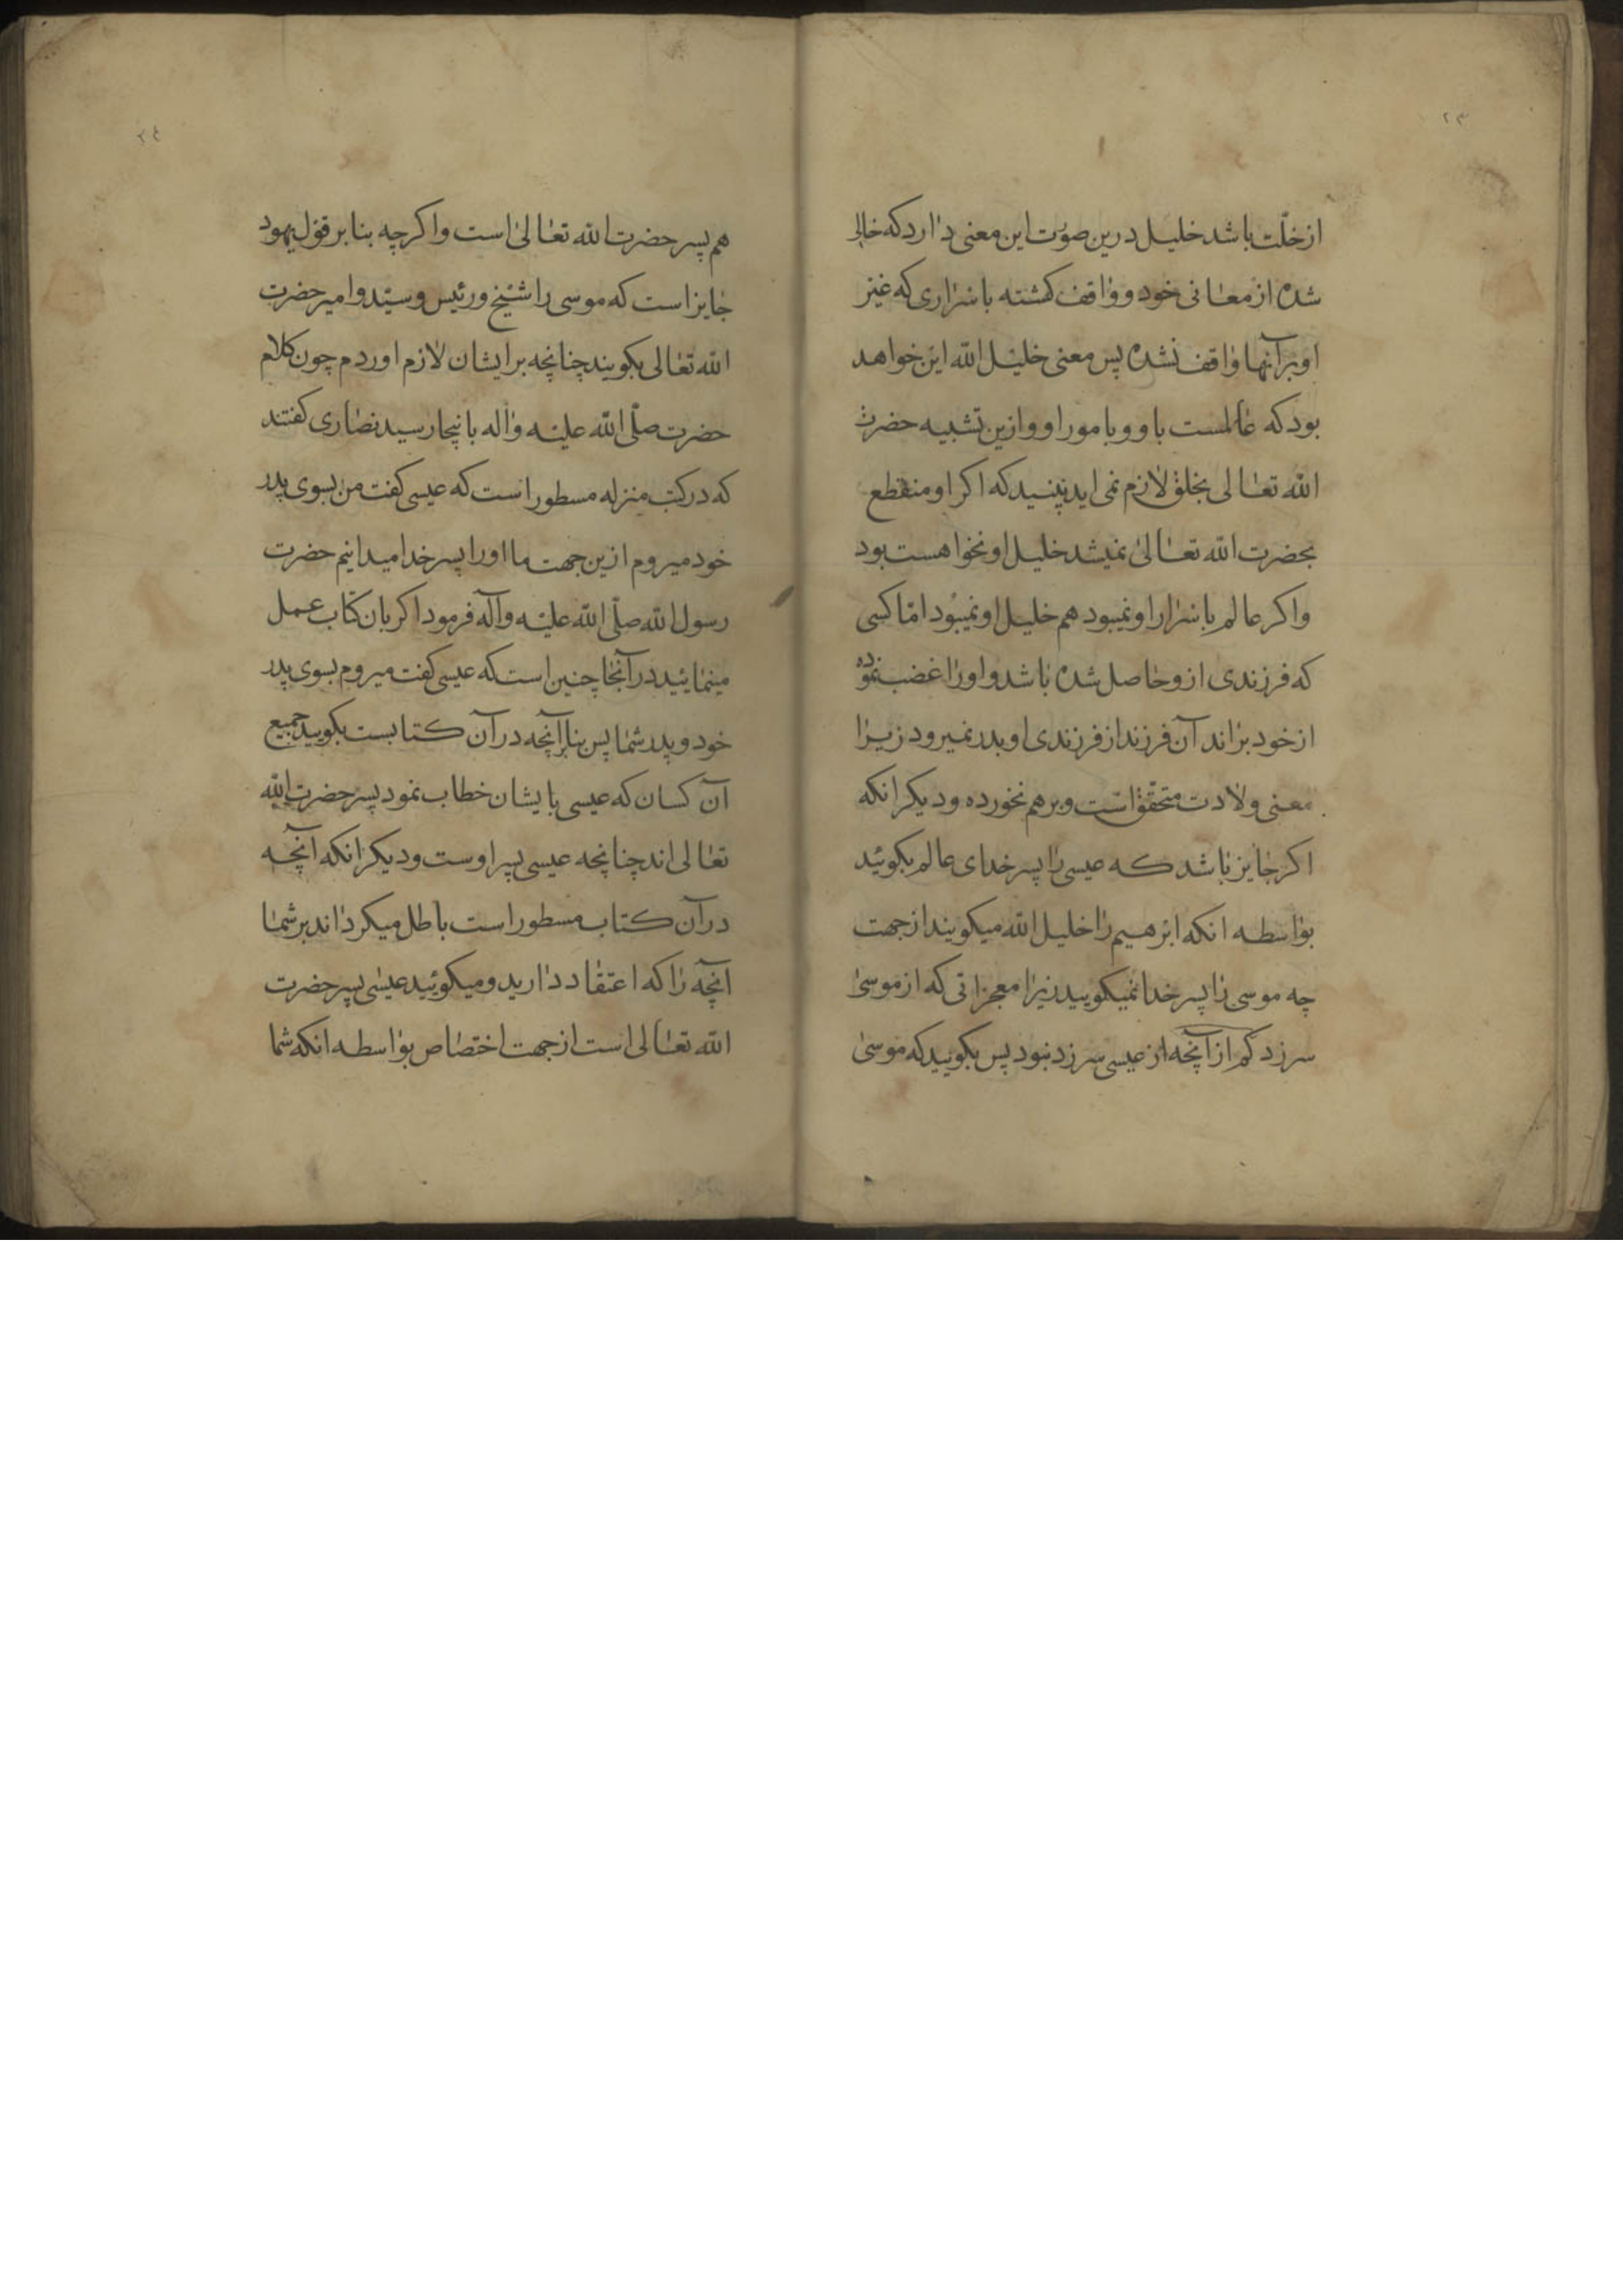 ٢٣
از خلّت باشد خلیل درین صوُت این معنی دارد که خالی
شده از معانی خود و واقف کشته باسراری که غیر
او برآنها واقف نشده پس معنی خلیل الله این خواهد
بود که عالمست باو و بامور او و ازین تشبیه حضرت
الله تعالی بخلق لازم نمی اید نپنید که اکر او منقطع
بحضرت الله تعالی نمیشد خلیل او نخواهست بود
واکر عالم باسرار او نمیبود هم خلیل او نمیبُود امّا کسی
که فرزندی ازو حاصل شده باشد و اورا غضب نموده
از خود براند آن فرزند از فرزندی او بدر نمیرود زیرا
معنی ولادت متحقّق است و برهم نخورده و دیکر انکه
اکر جایز باشد که عیسی را پسر خدای عالم بکوئید
بواسطه انکه ابرهیم را خلیل الله میکویند از جهت
چه موسی را پسر خدا نمیکویید زیرا معجزاتی که از موسیٰ
سرزد کم از آنچه از عیسی سرزد نبود پس بکویید که موسیٰ
٢٤
هم پسر حضرت الله تعالیٰ است واکرچه بنابر قول یهود
جایز است که موسی را شیخ و رئیس و سیّد و امیر حضرت
الله تعالی بکویند چنانچه بر ایشان لازم اوردم چون کلام
حضرت صلّی الله علیه واله بانیجا رسید نصاری کفتند
که در کتب منزله مسطور است که عیسی کفت من بسوی پدر
خود میروم ازین جهت ما اورا پسر خدا میدانیم حضرت
رسول الله صلّی الله علیه وآله فرمود اکر بان کتاب عمل
مینمائید در آنجا چنین است که عیسی کفت میروم بسوی پدر
خود و پدر شما پس بنابر آنچه در آن کتابست بکویید جمیع
آن کسان که عیسی بایشان خطاب نمود پسر حضرت الله
تعالی اند چنانچه عیسی پسر اوست و دیکر انکه آنچه
در آن کتاب مسطور است باطل میکرداند بر شما
انچه را که اعتقاد دارید و میکوئید عیسٰی پسر حضرت
الله تعالی است از جهت اختصاص بواسطه انکه شما